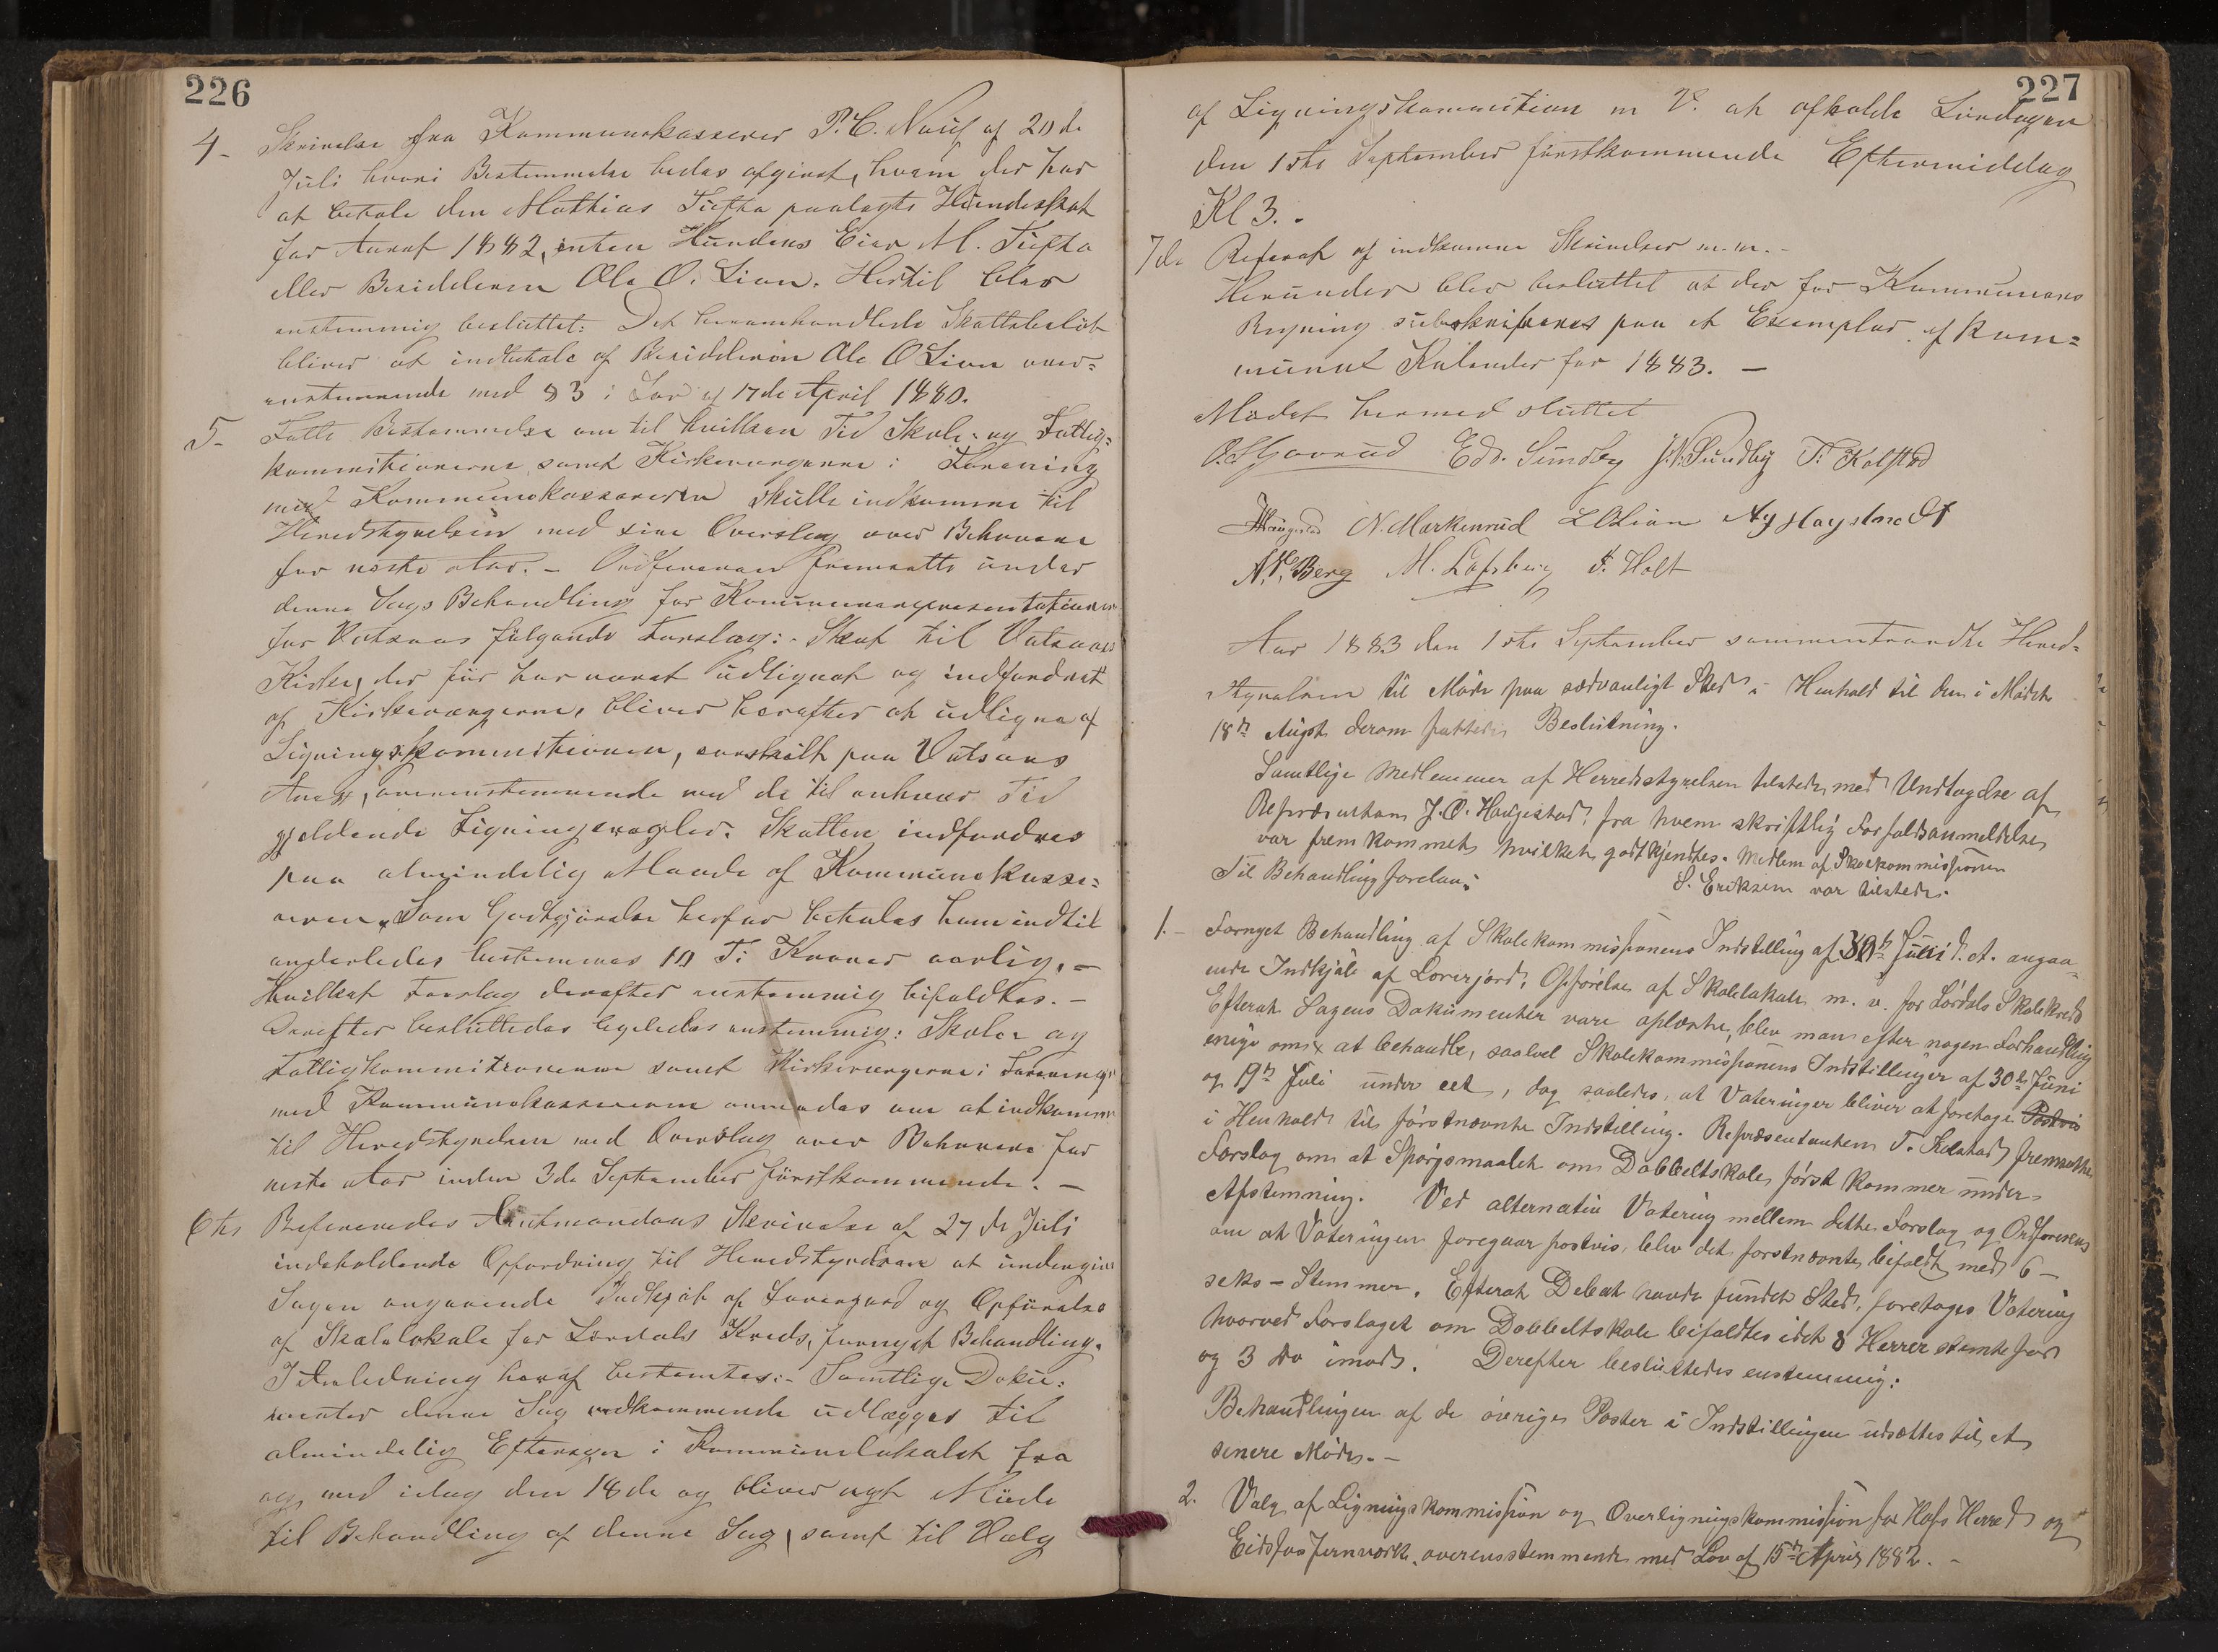 226
4- Skrivelse fra Kommunekasserer P. C. Nauf af 20de
Juli hvori Bestemmelse bedes afgivet, hvem der har
at betale den Mathias Tufta paalagte Hundeskat
for Aaret 1882, enten Hundens Eier M. Tufta
eller Besidderen Ole O. Lien. Hertil blev
enstemmig besluttet: Det heromhandlede Skattebeløb
bliver at indbetale af Besidderen Ole O Lien over=
enstemmende med § 3 i Lov af 17de April 1880.
5- Fatte Bestemmelse om til hvilken Tid Skole- og Fattig=
kommissionerne samt Kirkeværgerne i Forening
med Kommunekassereren skulle indkomme til
Herredstyrelsen med sine Overslag over Behovene
for næste Aar. - Ordføreren fremsatte under
denne Sags Behandling for Kommunerepresentationen
for Vatsaas følgende Forslag:- Skat til Vatsaas
Kirke, der før har været udlignet og indfordret
af Kirkeværgerne, bliver herefter at udligne af
Ligningskommissionen, særskilt paa Vatsaas
Annex, overensstemmende med de til enhver Tid
gjeldende Ligningsregler. Skatten indfordres
paa almindelig Maade af Kommunekasse=
reren. Som Godtgjørelse herfor betales ham indtil
anderledes bestemmes 10 Ti Kroner aarlig. -
Hvilket Forslag derefter enstemmig bifaldtes. -
Derefter besluttedes ligeledes enstemmig: Skole- og
Fattigkommissionerne samt Kirkeværgerne i Forening
med Kommunekassereren anmodes om at indkomme
til Herredstyrelsen med Overslag over Behovene for
neste Aar inden 3de September førstkommende. -
6te Refereredes Amtmandens Skrivelse af 27de Juli
indeholdende Opfordring til Herredstyrelsen at undergive
Sagen angaaende Indkjøb af Lærerjord og Opførelse
af Skolelokale for Lørdals Kreds, fornyet Behandling.
I Anledning heraf bestemtes:- Samtlige Doku=
menter denne Sag vedkommende udlægges til
almindelig Eftersyn i Kommunelokalet fra
og med idag den 18de og bliver nyt Møde
til Behandling af denne Sag, samt til Valg
227
af Ligningskommission m. V. at afholde Lørdagen
den 1ste September førstkommende Eftermiddag
Kl 3. -
7de Referat af indkomne Skrivelser m.m. -
Herunder blev besluttet at der for Kommunens
Regning subskriberes paa et Exemplar af Kom=
munal Kalender for 1883. -
Mødet hermed sluttet
Edv. Sundby J. N. Sundby T. Kolstad
N. Markerud L O Lian
A. P. Berg M. Løfsberg F. Holt
Aar 1883 den 1ste September sammentraadte Herred=
styrelsen til Møde paa sædvanligt Sted i Henhold til den i Mødet
18de August derom fattede Beslutning.
Samtlige Medlemmer af Herredsstyrelsen tilstede, med Undtagelse af
Repræsentant J. O. Haugestad, fra hvem skriftlig Forfaldsanmeldelse
var fremkommet, hvilken godtkjendtes. Medlem af Skolekommissionen
S. Eriksen var tilstede.
Til Behandling forelaa:
1.- Fornyet Behandling af Skolekommissionens Indstilling af 30te Juni d. A. angaa=
ende Indkjøb af Lærerjord, Opførelse af Skolelokale m. v. for Lørdals Skolekreds
Efterat Sagens Dokumenter vare oplæste, blev man efter nogen Forhandling
enige om at behandle, saavel Skolekommissionens Indstillinger af 30te Juni
og 19de Juli under eet, dog saaledes, at Voteringer bliver at foretage Postvis
i Henhold til førstnævnte Indstilling. Repræsentanten T. Kolstad fremsatte
Forslag om at Spørgsmaalet om Dobbeltskole først kommer under
Afstemning. Ved alternativ Votering mellem dette Forslag og Ordførerens
om at Voteringen foregaar postvis, blev det førstnævnte bifaldt med 6 -
seks - Stemmer. Efterat Debat havde fundet Sted, foretoges Votering
hvorved Forslaget om Dobbeltskole bifaldtes idet 8 Herrer stemte for
og 3 do imod. Derefter besluttedes enstemmig:
Behandlingen af de øvrige Poster i Indstillingen udsættes til et
senere Møde. -
2. Valg af Ligningskommission og Overligningskommission for Hofs Herred og
Eidsfos Jernværk, overensstemmende med Lov af 15de April 1882. -